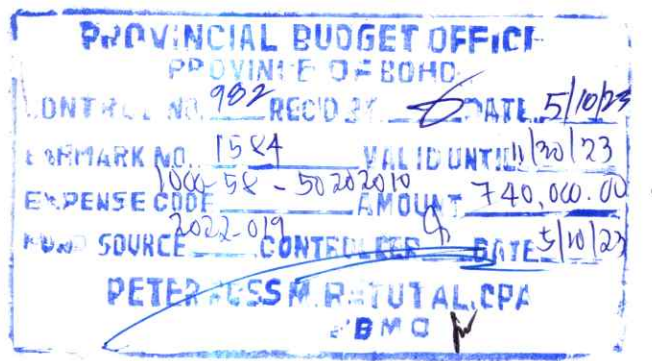 PROVINCIAL BUDGET OFFICE
PROVINCE OF BOHO
CONTROL NO. 982 REC'D BY DATE 5/10/23
EARMARK NO. 1584 VALID UNTIL 11/30/23
EXPENSE CODE 1000-58-50202010 AMOUNT 740,000.00
FUND SOURCE 2022-019 CONTROLLER DATE 5/10/23
PETER ROSS M. RETUTAL, CPA
PBMO